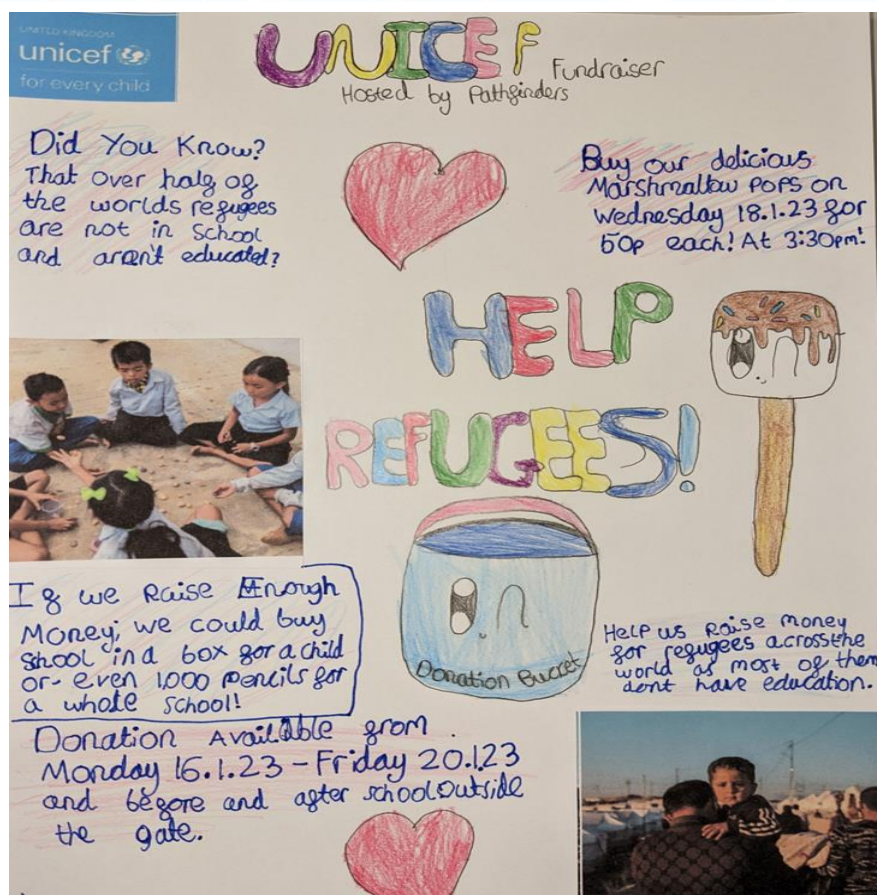 UNITED KINGDOM
unicef
for every child
UNICEF Fundraiser
Hosted by Pathfinders
Did You Know?
That over half of
the worlds refugees
are not in school
and aren't educated?
Buy our delicious
Marshmallow Pops on
Wednesday 18.1.23 for
50p each! At 3:30pm!
HELP
REFUGEES!
If we Raise Enough
Money, we could buy
school in a box for a child
or even 1,000 pencils for
a whole school!
Donation Bucket
Help us Raise money
for refugees across the
world as most of them
dont have education.
Donation Available from
Monday 16.1.23 - Friday 20.1.23
and before and after school outside
the gate.